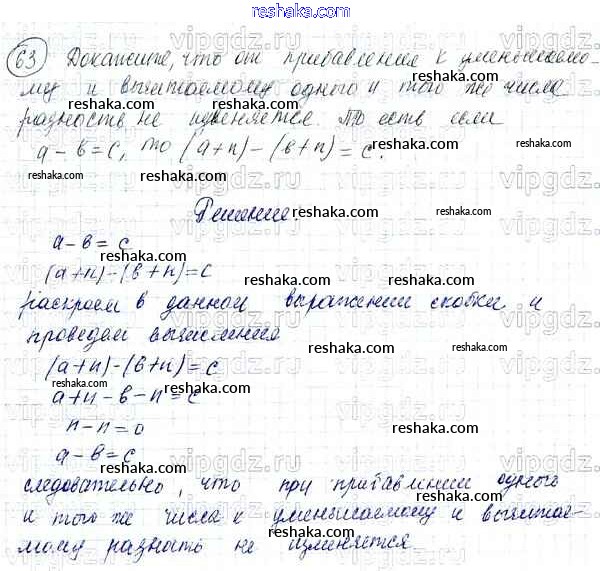 reshaka.com
63 Докажите, что от прибавления к уменьшаемо-
му и вычитаемому одного и того же числа
разность не изменяется. То есть если
a - в = c, то (a+n) - (в+n) = c.
Решение
a - в = c
(a+n) - (в+n) = c
раскроем в данном выражении скобки и
проведем вычисления
(a+n) - (в+n) = c
a+n - в - n = c
n - n = 0
a - в = c
следовательно, что при прибавлении одного
и того же числа к уменьшаемому и вычитае-
мому разность не изменяется